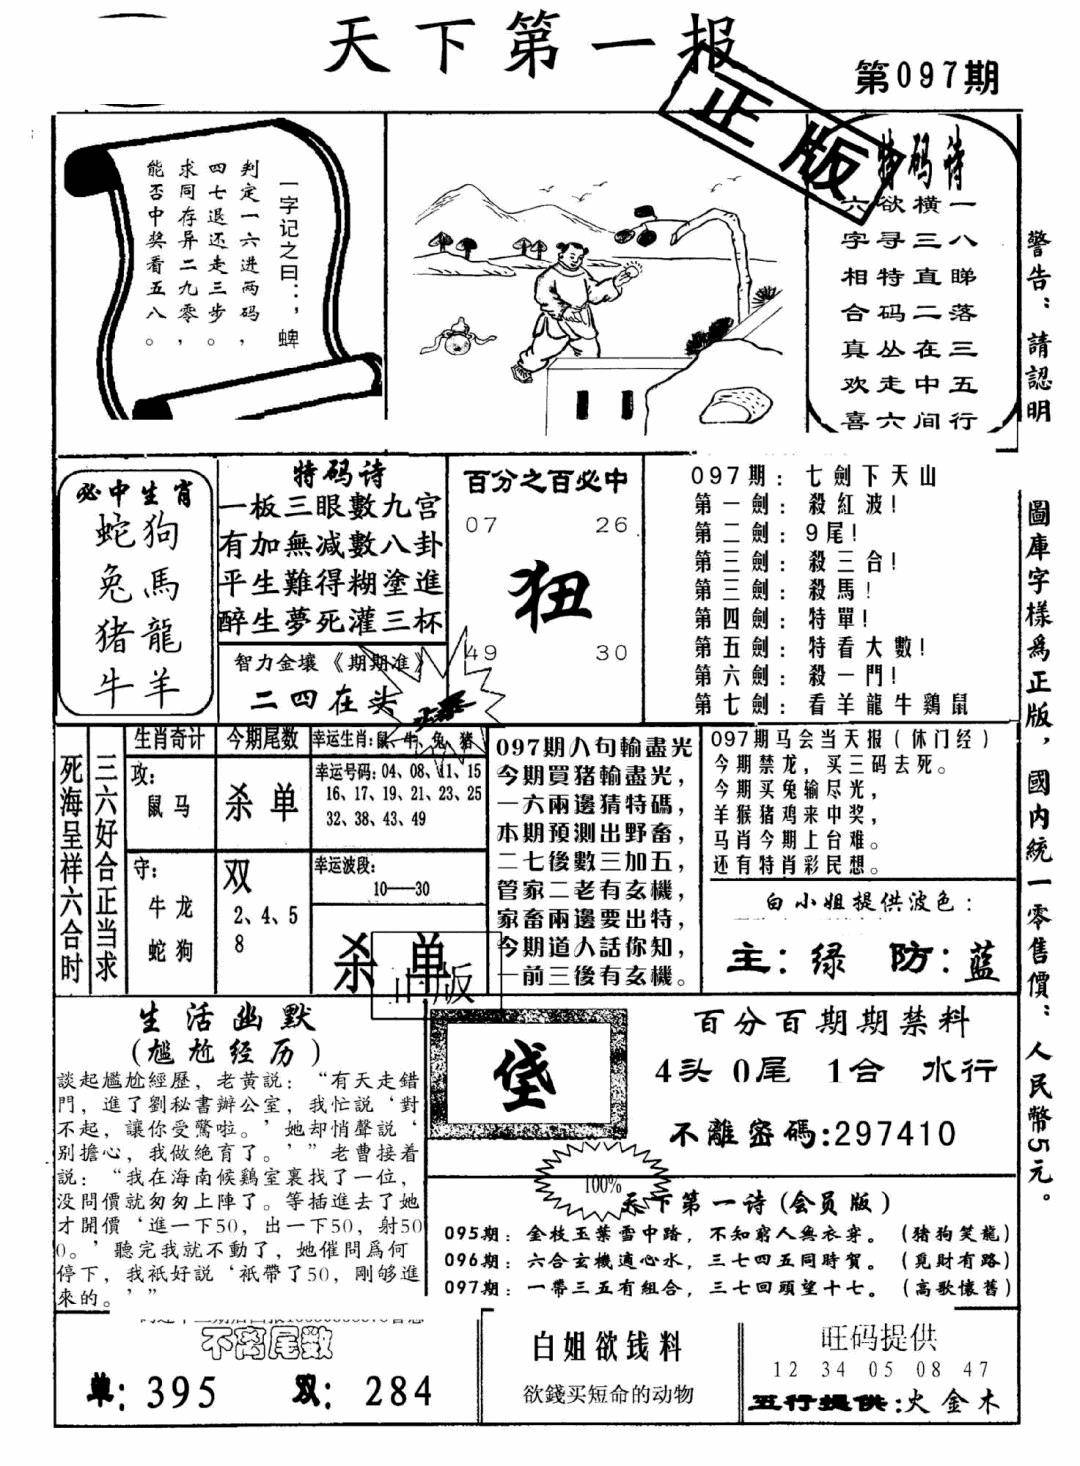 天下第一报
第097期
正版
一字记之曰：，蜱
判定一六进两码，
四七退还走三步。
求同存异二九零，
能否中奖看五八。
特码诗
一八睇落三五行
横三直二在中间
欲寻特码丛走六
六字相合真欢喜
警告：請認明
圖庫字樣爲正版，國内統一零售價：人民幣5元。
必中生肖
蛇狗
兔馬
猪龍
牛羊
特码诗
一板三眼數九宫
有加無减數八卦
平生難得糊塗進
醉生夢死灌三杯
智力金壤《期期准》
二四在头
百分之百必中
07 26
狃
49 30
097期：七劍下天山
第一劍：殺紅波！
第二劍：9尾！
第三劍：殺三合！
第三劍：殺馬！
第四劍：特單！
第五劍：特看大數！
第六劍：殺一門！
第七劍：看羊龍牛鷄鼠
死海呈样六合时
三六好合正当求
生肖奇计
攻：
鼠马
守：
牛龙
蛇狗
今期尾数
杀单
双
2、4、5
8
幸运生肖：鼠、牛、兔、猪
幸运号码：04、08、11、15
16、17、19、21、23、25
32、38、43、49
幸运波段：
10—30
杀单
正版
097期八句輸盡光
今期買猪輸盡光，
一六兩邊猜特碼，
本期預測出野畜，
二七後數三加五，
管家二老有玄機，
家畜兩邊要出特，
今期道人話你知，
一前三後有玄機。
097期马会当天报（休门经）
今期禁龙，买三码去死。
今期买兔输尽光，
羊猴猪鸡来中奖，
马肖今期上台难。
还有特肖彩民想。
白小姐提供波色：
主：绿 防：蓝
生活幽默
(尴尬经历)
談起尷尬經歷，老黄説：“有天走錯
門，進了劉秘書辦公室，我忙説‘對
不起，讓你受驚啦。’她却悄聲説‘
别擔心，我做絶育了。’”老曹接着
説：“我在海南候鷄室裏找了一位，
没問價就匆匆上陣了。等插進去了她
才開價‘進一下50，出一下50，射50
0。’聽完我就不動了，她催問爲何
停下，我衹好説‘衹帶了50，剛够進
來的。’”
垡
百分百期期禁料
4头 0尾 1合 水行
不離密碼:297410
100%
天下第一诗(会员版)
095期：金枝玉葉雪中踏，不知窮人無衣穿。（猪狗笑龍）
096期：六合玄機適心水，三七四五同時賀。（覓財有路）
097期：一帶三五有組合，三七回頭望十七。（高歌懷舊）
不离尾数
单：395 双：284
白姐欲钱料
欲錢买短命的动物
旺码提供
12 34 05 08 47
五行提供:火金木